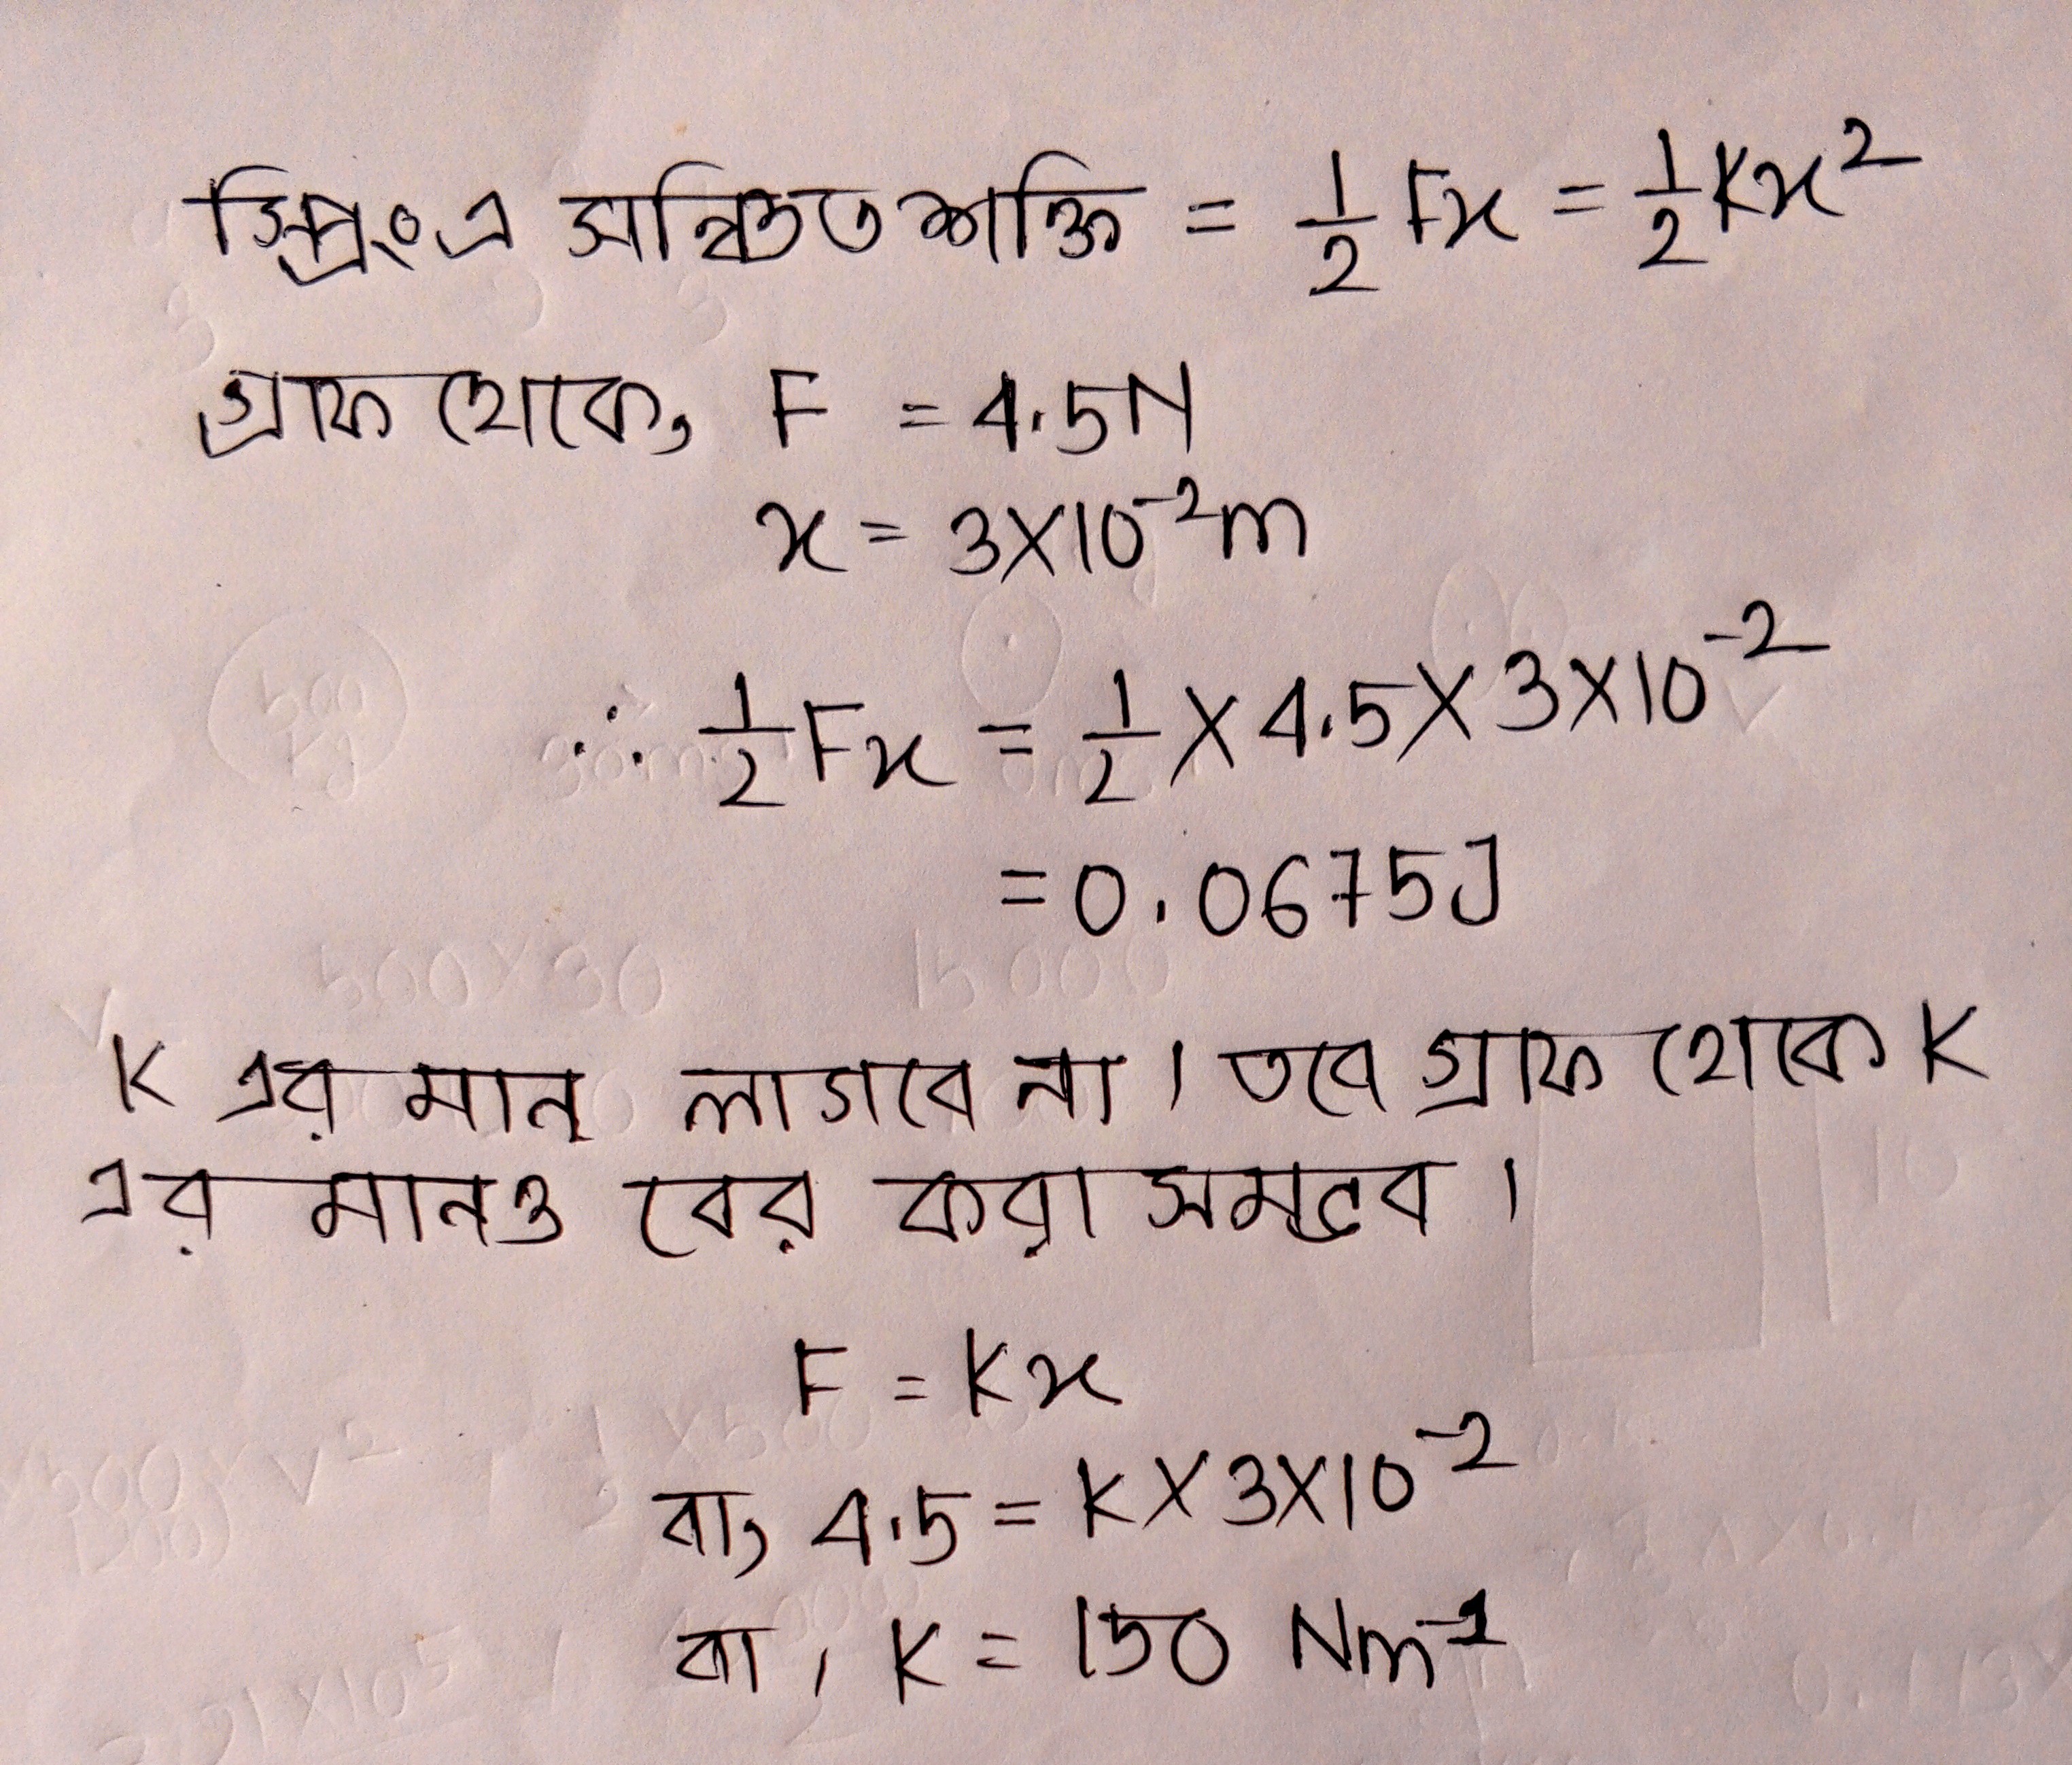 স্প্রিং এ সঞ্চিত শক্তি = 1/2 Fx = 1/2 Kx²
গ্রাফ থেকে, F = 4.5N
x = 3×10⁻²m
∴ 1/2 Fx = 1/2 × 4.5 × 3×10⁻²
= 0.0675J
K এর মান লাগবে না। তবে গ্রাফ থেকে K
এর মানও বের করা সম্ভব।
F = Kx
বা, 4.5 = K × 3×10⁻²
বা, K = 150 Nm⁻¹